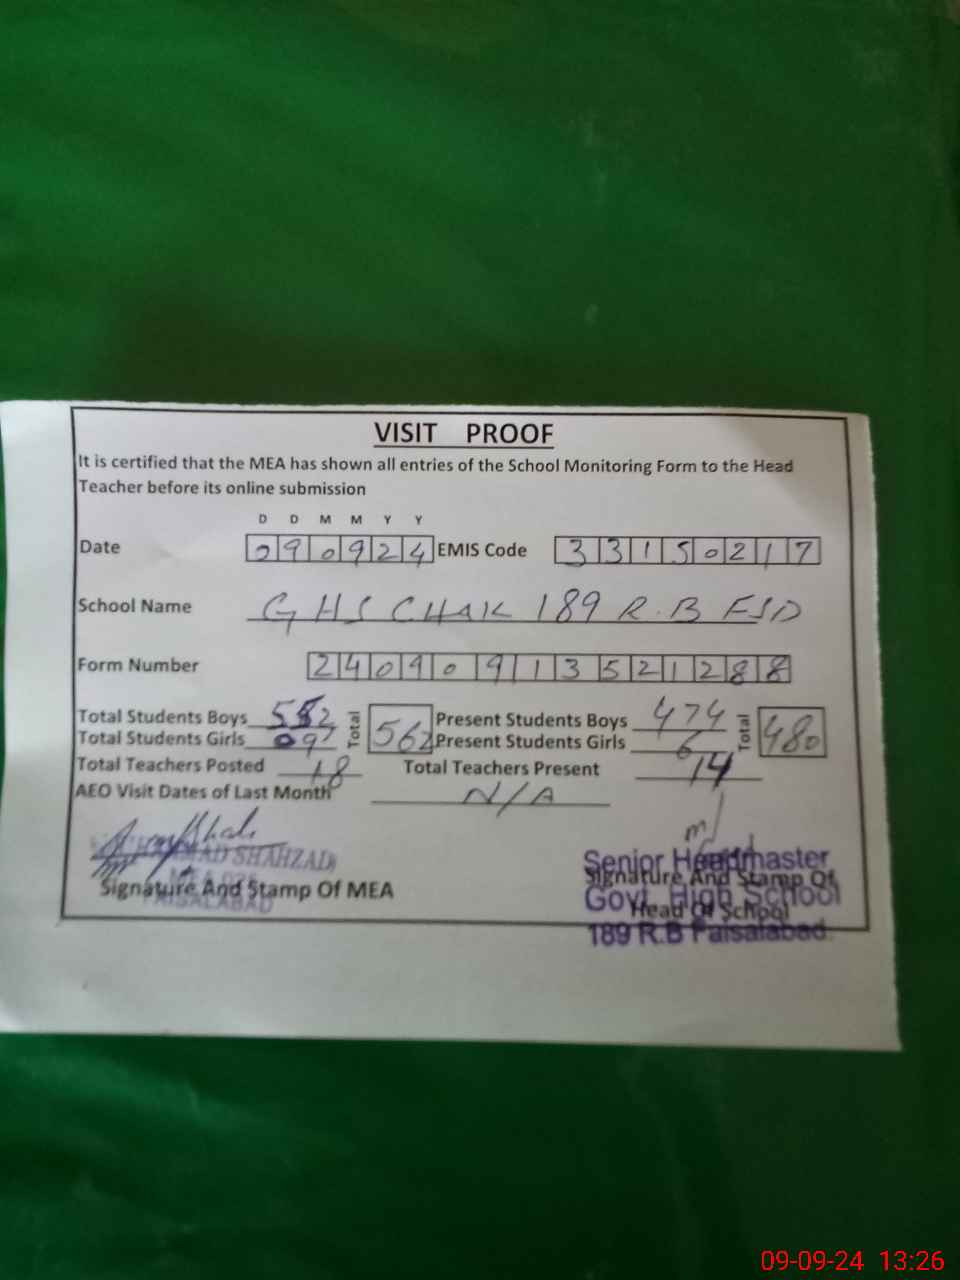 VISIT PROOF
It is certified that the MEA has shown all entries of the School Monitoring Form to the Head
Teacher before its online submission
D D M M Y Y
Date 090924 EMIS Code 33150217
School Name GHS CHAK 189 R.B FSD
Form Number 24090913521288
Total Students Boys Total 562 Present Students Boys 474 Total 480
Total Students Girls Present Students Girls 6
Total Teachers Posted 18 Total Teachers Present 14
AEO Visit Dates of Last Month N/A
SHAHZAD
FAISALABAD
Signature And Stamp Of MEA
Senior Headmaster
Signature And Stamp Of
Govt. High School
Head Of School
189 R.B Faisalabad.
09-09-24 13:26